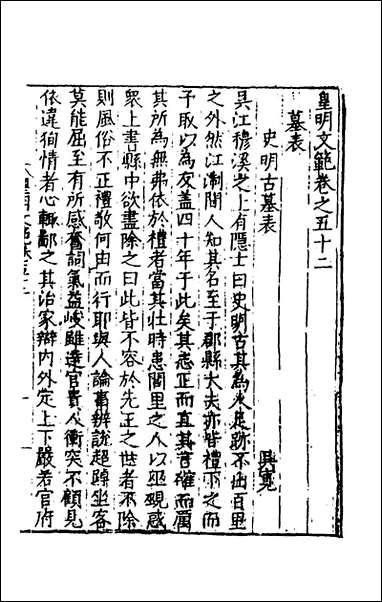 皇明文範卷之五十二
墓表
史明古墓表
吳寬
吳江穆溪之上有隱士曰史明古其為人足跡不出百里
之外然江淛間人知其名至于郡縣大夫亦皆禮下之而
予取以為友蓋四十年于此矣其志正而直其言確而厲
其所為無弗依於禮者當其壯時患閭里之人以巫覡惑
衆上書縣中欲盡除之曰此皆不容於先王之世者不除
則風俗不正禮敎何由而行耶與人論事辨說超踔坐客
莫能屈至有所感奮詞氣益峻雖達官貴人衝突不顧見
依違狥情者心輒鄙之其治家辯內外定上下嚴若官府